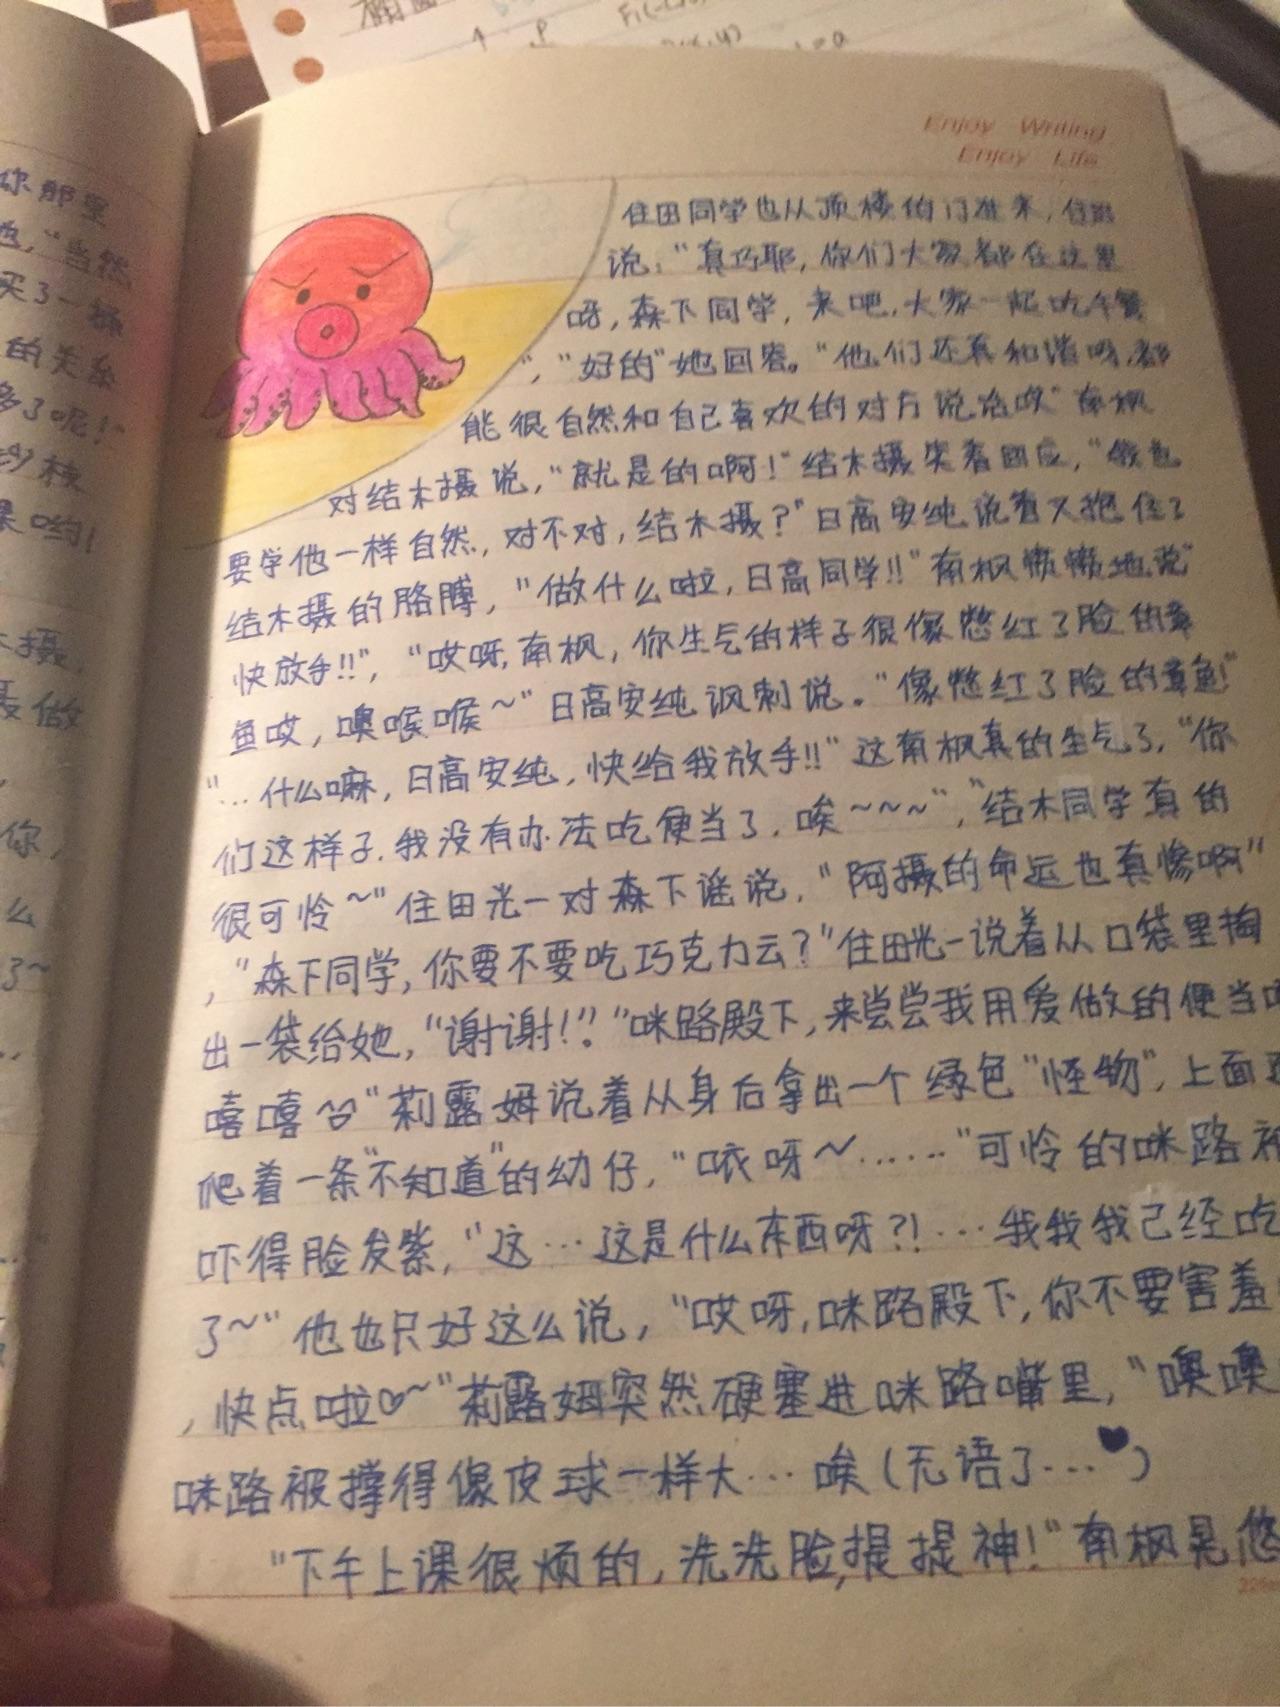 Enjoy Writing
Enjoy Life
住田同学也从顶楼的门进来,住田
说:"真巧耶,你们大家都在这里
呀,森下同学,来吧,大家一起吃午餐
","好的"她回答。"他们还真和谐呀,都
能很自然和自己喜欢的对方说话哎"南枫
对结木摄说,"就是的啊!"结木摄笑着回应,"我也
要学他一样自然,对不对,结木摄?"日高安纯说着又抱住了
结木摄的胳膊,"做什么啦,日高同学!!"南枫愤愤地说"
快放手!!","哎呀,南枫,你生气的样子很像憋红了脸的章
鱼哎,噢喉喉~"日高安纯讽刺说。"像憋红了脸的章鱼!"
"…什么嘛,日高安纯,快给我放手!!"这南枫真的生气了,"你
们这样子,我没有办法吃便当了,唉~~~","结木同学真的
很可怜~"住田光一对森下谣说,"阿摄的命运也真惨啊"
,"森下同学,你要不要吃巧克力云?"住田光一说着从口袋里掏
出一袋给她,"谢谢!"。"咪路殿下,来尝尝我用爱做的便当
嘻嘻"莉露姆说着从身后拿出一个绿色"怪物",上面
爬着一条"不知道"的幼仔,"咦呀~……"可怜的咪路被
吓得脸发紫,"这…这是什么东西呀?!…我我我己经吃
了~"他也只好这么说,"哎呀,咪路殿下,你不要害羞
,快点啦♡~"莉露姆突然硬塞进咪路嘴里,"噢噢
咪路被撑得像皮球一样大…唉(无语了…♥)
"下午上课很烦的,洗洗脸,提提神!"南枫晃悠
你那里
"当然
买了一
的关系
多了呢!"
木摄,
做
你,
么
了~